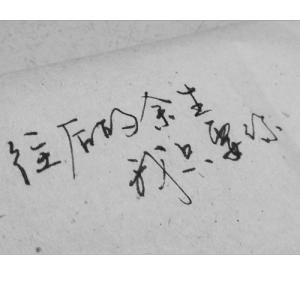 往后的余生
我只要你